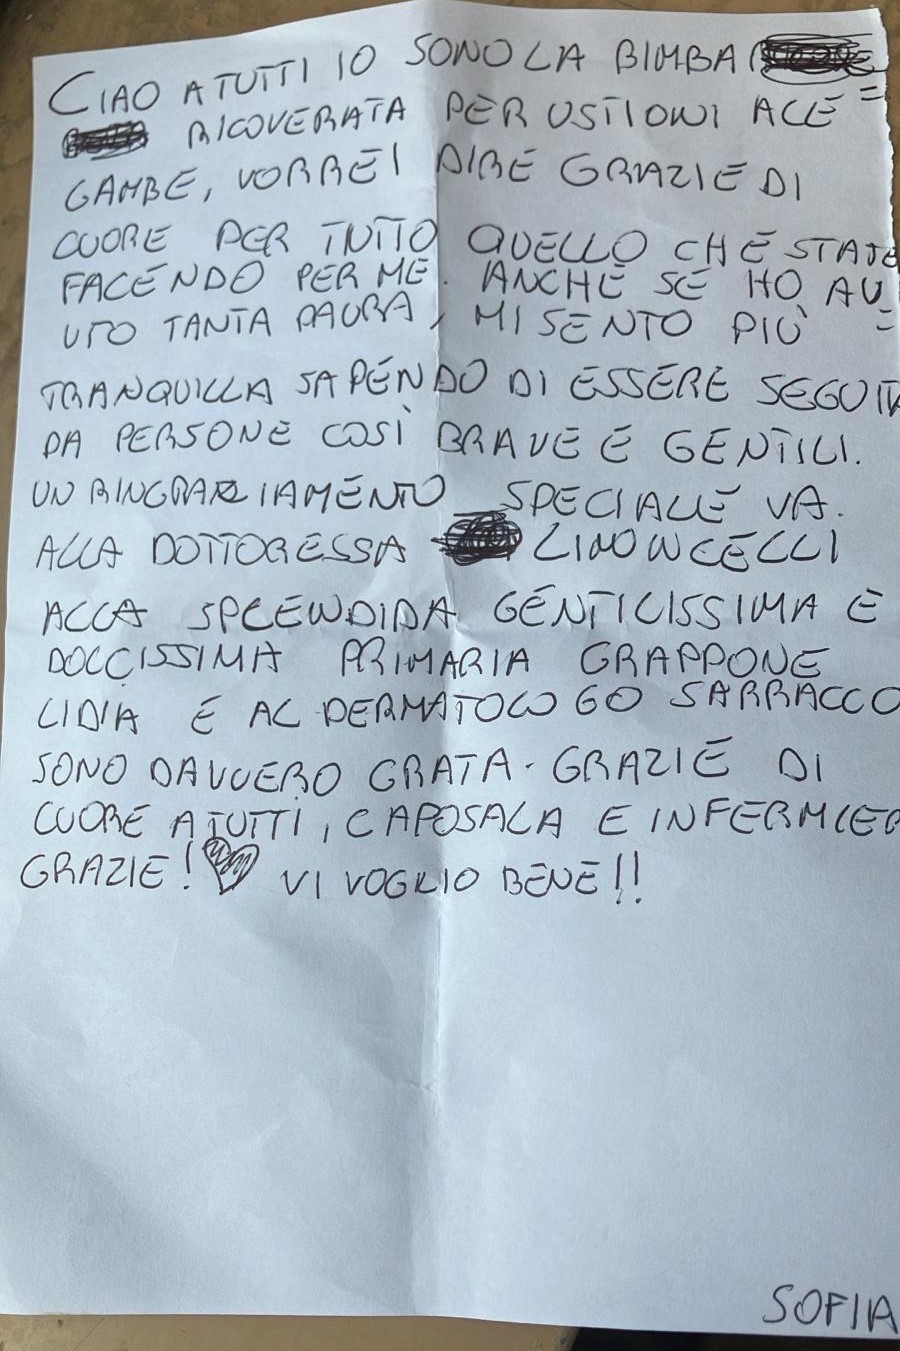 CIAO A TUTTI IO SONO LA BIMBA
RICOVERATA PER USTIONI ALLE=
GAMBE, VORREI DIRE GRAZIE DI
CUORE PER TUTTO QUELLO CHE STATE
FACENDO PER ME. ANCHE SE HO AV=
UTO TANTA PAURA, MI SENTO PIÙ
TRANQUILLA SAPENDO DI ESSERE SEGUITA
DA PERSONE COSÌ BRAVE E GENTILI.
UN RINGRAZIAMENTO SPECIALE VA.
ALLA DOTTORESSA LIMONCELLI
ALLA SPLENDIDA GENTILISSIMA E
DOLCISSIMA PRIMARIA GRAPPONE
LIDIA E AL DERMATOLOGO SARRACCO
SONO DAVVERO GRATA. GRAZIE DI
CUORE A TUTTI, CAPOSALA E INFERMIER
GRAZIE! VI VOGLIO BENE!!
SOFIA